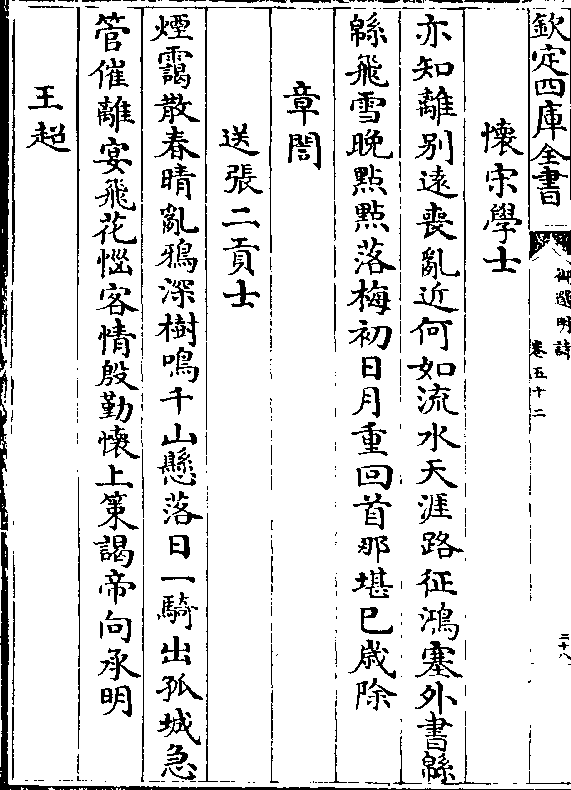 欽定四庫全書
御選明詩
卷五十二
二十八
懷宋學士
亦知離別遠喪亂近何如流水天涯路征鴻塞外書緜
緜飛雪晚點點落梅初日月重回首那堪已歲除
章誾
送張二貢士
煙靄散春晴亂鴉深樹鳴千山懸落日一騎出孤城急
管催離宴飛花惱客情殷勤懷上策謁帝向承明
王超